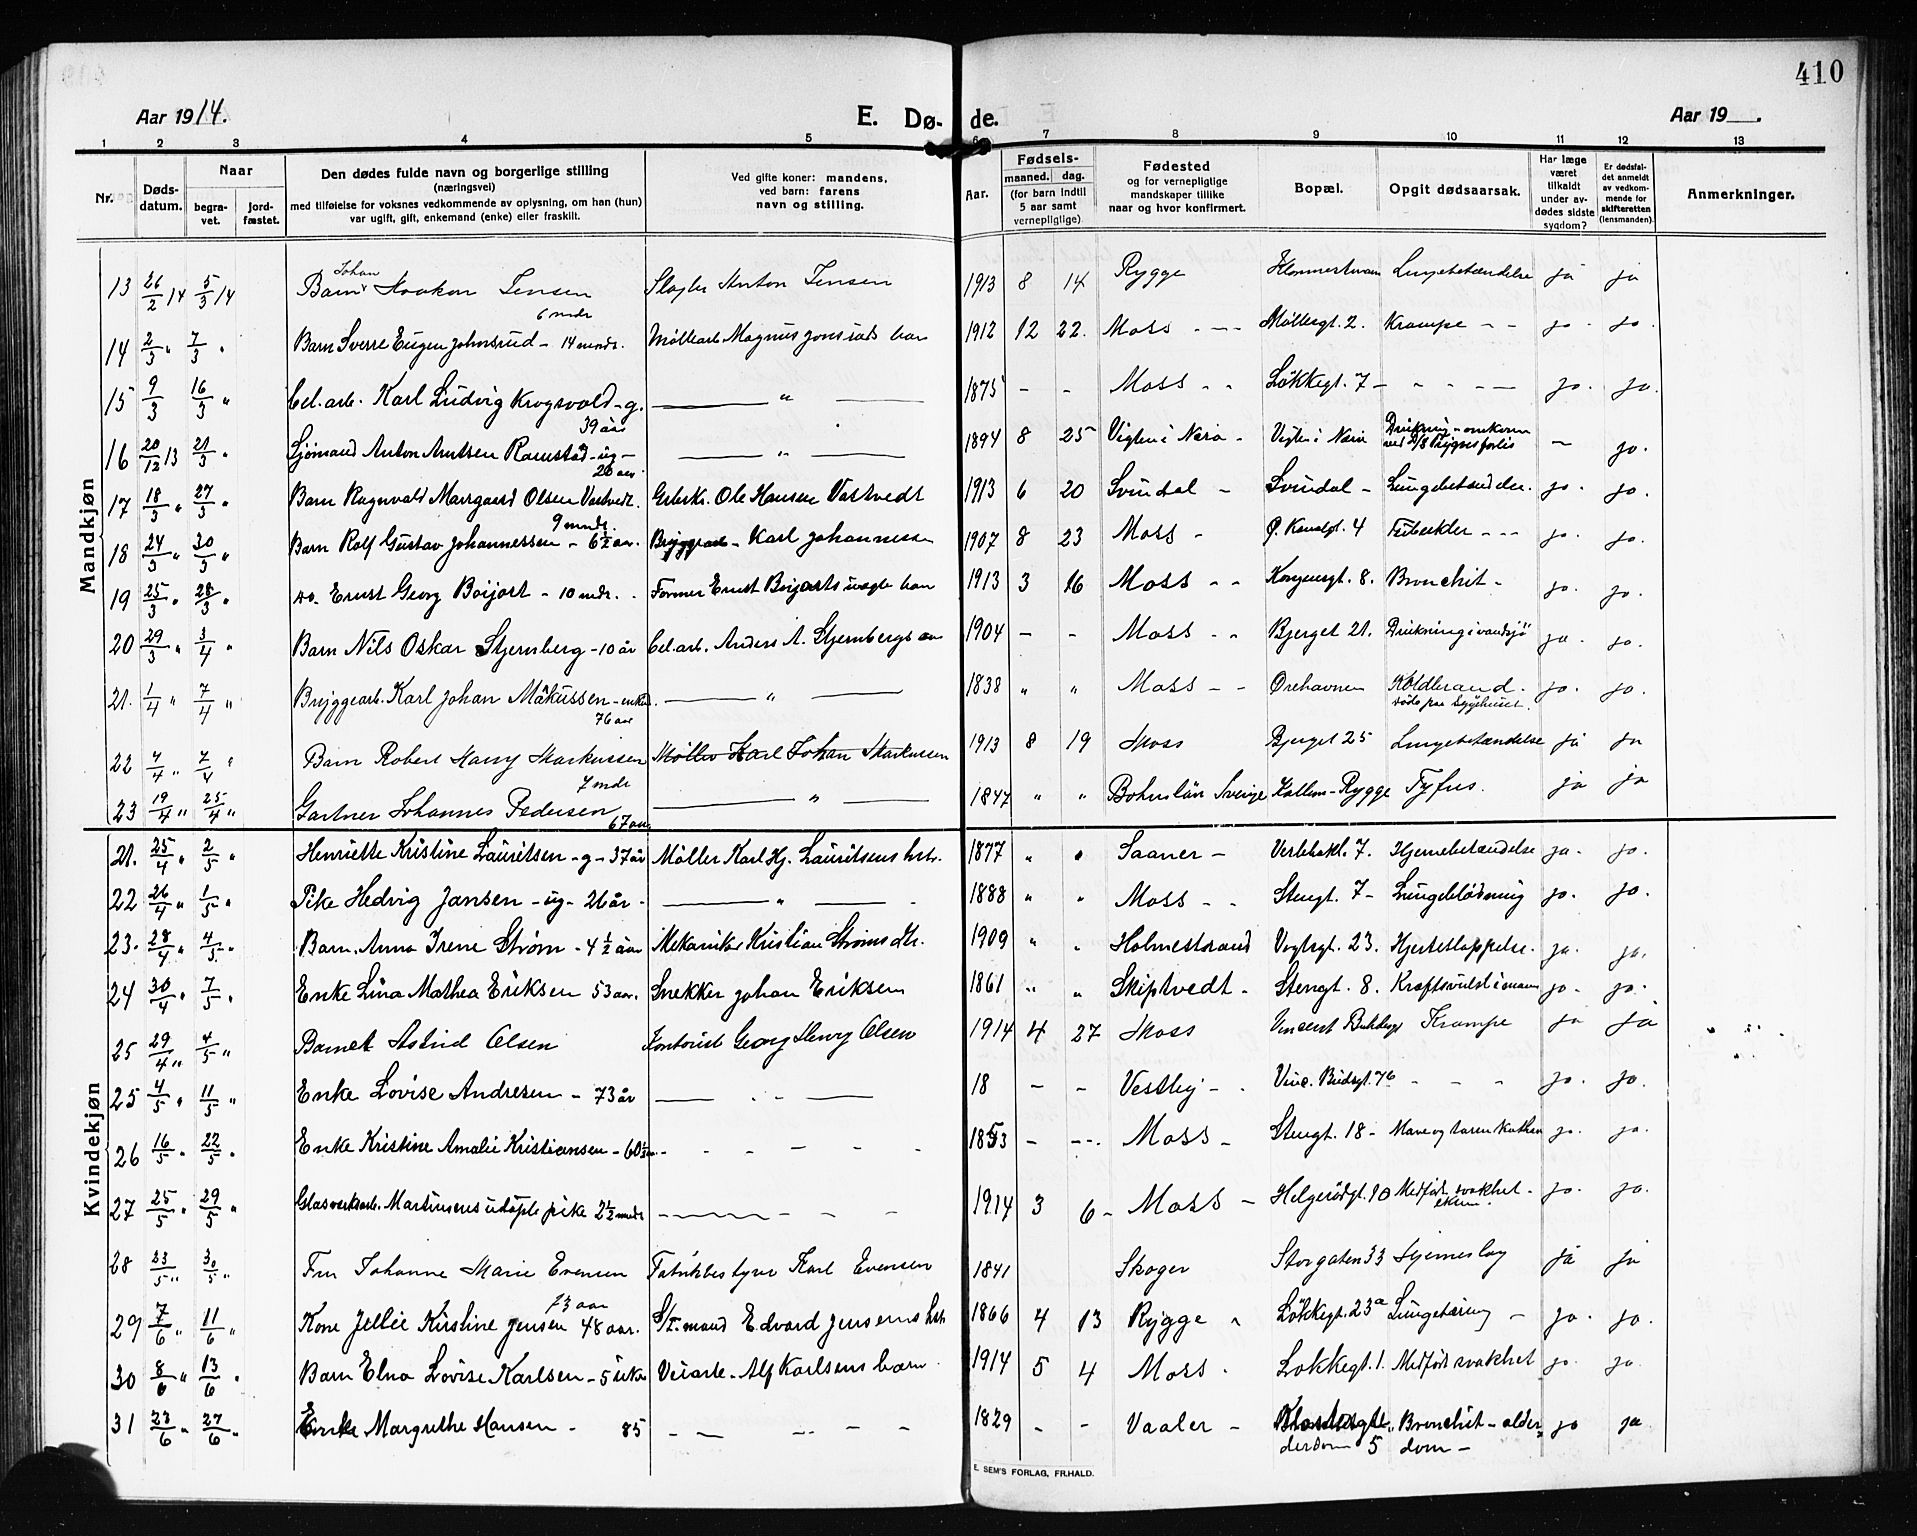 410
Aar 1914.
E. Dø- de.
Aar 19___.
1 2 3 4 5 6 7 8 9 10 11 12 13
Nr. Døds-datum. Naar begra-vet. jord-fæstet.
Den dødes fulde navn og borgerlige stilling
(næringsvei)
med tilføielse for voksnes vedkommende av oplysning, om han (hun)
var ugift, gift, enkemand (enke) eller fraskilt.
Ved gifte koner: mandens,
ved barn: farens
navn og stilling.
Aar.
Fødsels-
maaned. dag.
(for barn indtil
5 aar samt
vernepligtige)
Fødested
og for vernepligtige
mandskaper tillike
naar og hvor konfirmert.
Bopæl.
Opgit dødsaarsak.
Har læge
været
tilkaldt
under av-
dødes sidste
sygdom?
Er dødsfal-
det anmeldt
av vedkom-
mende for
skifteretten
(lensmanden).
Anmerkninger.
Mandkjøn
13 26/2 14 5/3 14 Barn Johan Haakon Jensen 6 mdr Slagter Anton Jensen 1913 8 14 Rygge Lungebetændelse ja ja
14 2/3 " 7/3 " Barn Sverre Eugen Johnsrud - 14 mndr. 1912 12 22. Moss Møllergt. 2. Krampe - - ja. ja.
15 9/3 16/3 " Cel.arb. Karl Ludvig Krogsvold - g. 39 år — " — 1875 - - Moss - - Løkkegt. 7 - - - - ja. ja.
16 20/12 13 21/3 " Sjømand Anton Arntsen Ramstad - ug - 20 aar. — " — 1894 8 25 Vigten i Nærø - Vigten i Nærø — ja.
17 18/3 " 27/3 " Barn Ragnvald Olsen Vastvedt. 9 mndr. Ole Hansen Vastvedt 1913 6 20 Svindal - Svindal - Lungebetændelse. ja. ja.
18 24/3 " 30/3 " Barn Rolf Gustav Johannessen - 6 1/2 aar. Bryggearb - Karl Johannessen 1907 8 23 Moss - Ø. Kanalgt. 4 ja. ja.
19 25/3 " 28/3 " do. Ernst Georg Boijort - 10 mdr. Former Ernst 1913 3 16 Moss - - Kongensgt. 8. Bronchit - ja. ja.
20 29/3 " 3/4 " Barn Nils Oskar Stjernberg - 10 år Cel.arb. Anders A. Stjernbergs 1904 - - Moss - - Bjerget 21. Drukning i vandsjø ja. ja.
21. 1/4 " 7/4 " Bryggearb. Karl Johan Markussen - enkem. 76 aar — " — 1838 " " Moss - - Ørehavnen Koldbrand. døde paa Sygehuset. ja. ja.
22 4/4 " 7/4 " Barn Robert Harry Markussen 7 mdr Møller Karl Johan Markussen 1913 8 19 Moss Bjerget 25 Lungebetændelse ja ja
23 19/4 " 25/4 " Gartner Johannes Pedersen 67 aar — " — 1847 " " Bohuslän Sverige Kallum - Rygge Tyfus. ja ja
Kvindekjøn
21. 25/4 " 2/5 " Henriette Kristine Lauritsen - g - 37 år Møller Karl Hj. Lauritsens hstr. 1877 " " Saaner - Verlebakl. 7. Hjernebetændelse ja. ja.
22 26/4 " 1/5 " Pike Hedvig Jansen - ug - 26 år - — " — 1888 " " Moss - - Stengt. 7 - Lungeblødning ja. ja.
23. 28/4 " 4/5 " Barn Anna Irene Strøm - 4 1/2 aar Mekaniker Kristian Strøms dtr. 1909 " " Holmestrand Vogtsgt. 23. Hjertelammelse. ja. ja.
24 30/4 " 7/5 " Enke Lina Mathea Eriksen 53 aar. Snekker Johan Eriksen 1861 " " Skiptvedt - Stengt. 8. Kræftsvulst i maven ja. ja.
25 29/4 " 4/5 " Barnet Astrid Olsen Kontorist Georg Henry Olsen 1914 4 27 Moss Vincent Krampe ja ja
25 4/5 " 11/5 " Enke Lovise Andresen - 73 år 18 - - Vestby - - Vinc. Budsgt. 76 - - - ja. ja.
26 16/5 22/5 " Enke Kristine Amalie Kristiansen - 60 1/2 aar 1853 - - Moss - Stengt. 18 - Mave og tarm ja. ja.
27 25/5 " 29/5 " Glasverksarb. Martinsens udøpte pike 2 1/2 mdr 1914 3 6 - Moss - Helgerødgt. 10 Medfødt svakhet - ja. ja.
28 23/5 " 30/5 " Fru Johanne Marie Evensen 73 aar Fabrikbestyrer Karl Evensen 1841 Skoger Storgaten 33 Hjerneslag ja ja
29 7/6 " 11/6 " Kone Jellie Kirstine Jensen 48 aar. Edvard Jensens hstr 1866 4 13 Rygge " Løkkegt. 23a Lungetæring - ja. ja.
30 8/6 " 13/6 " Barn Elna Lovise Karlsen - 5 uker Veiarb. Alf Karlsens barn. 1914 5 4 Moss - Løkkegt. 1. Medfødt svakhet ja. ja.
31 23/6 " 27/6 " Enke Margrethe Hansen - 85 1829 - - Vaaler - 5 Bronchit - alder-dom - ja ja
E. SEM'S FORLAG, FR.HALD.